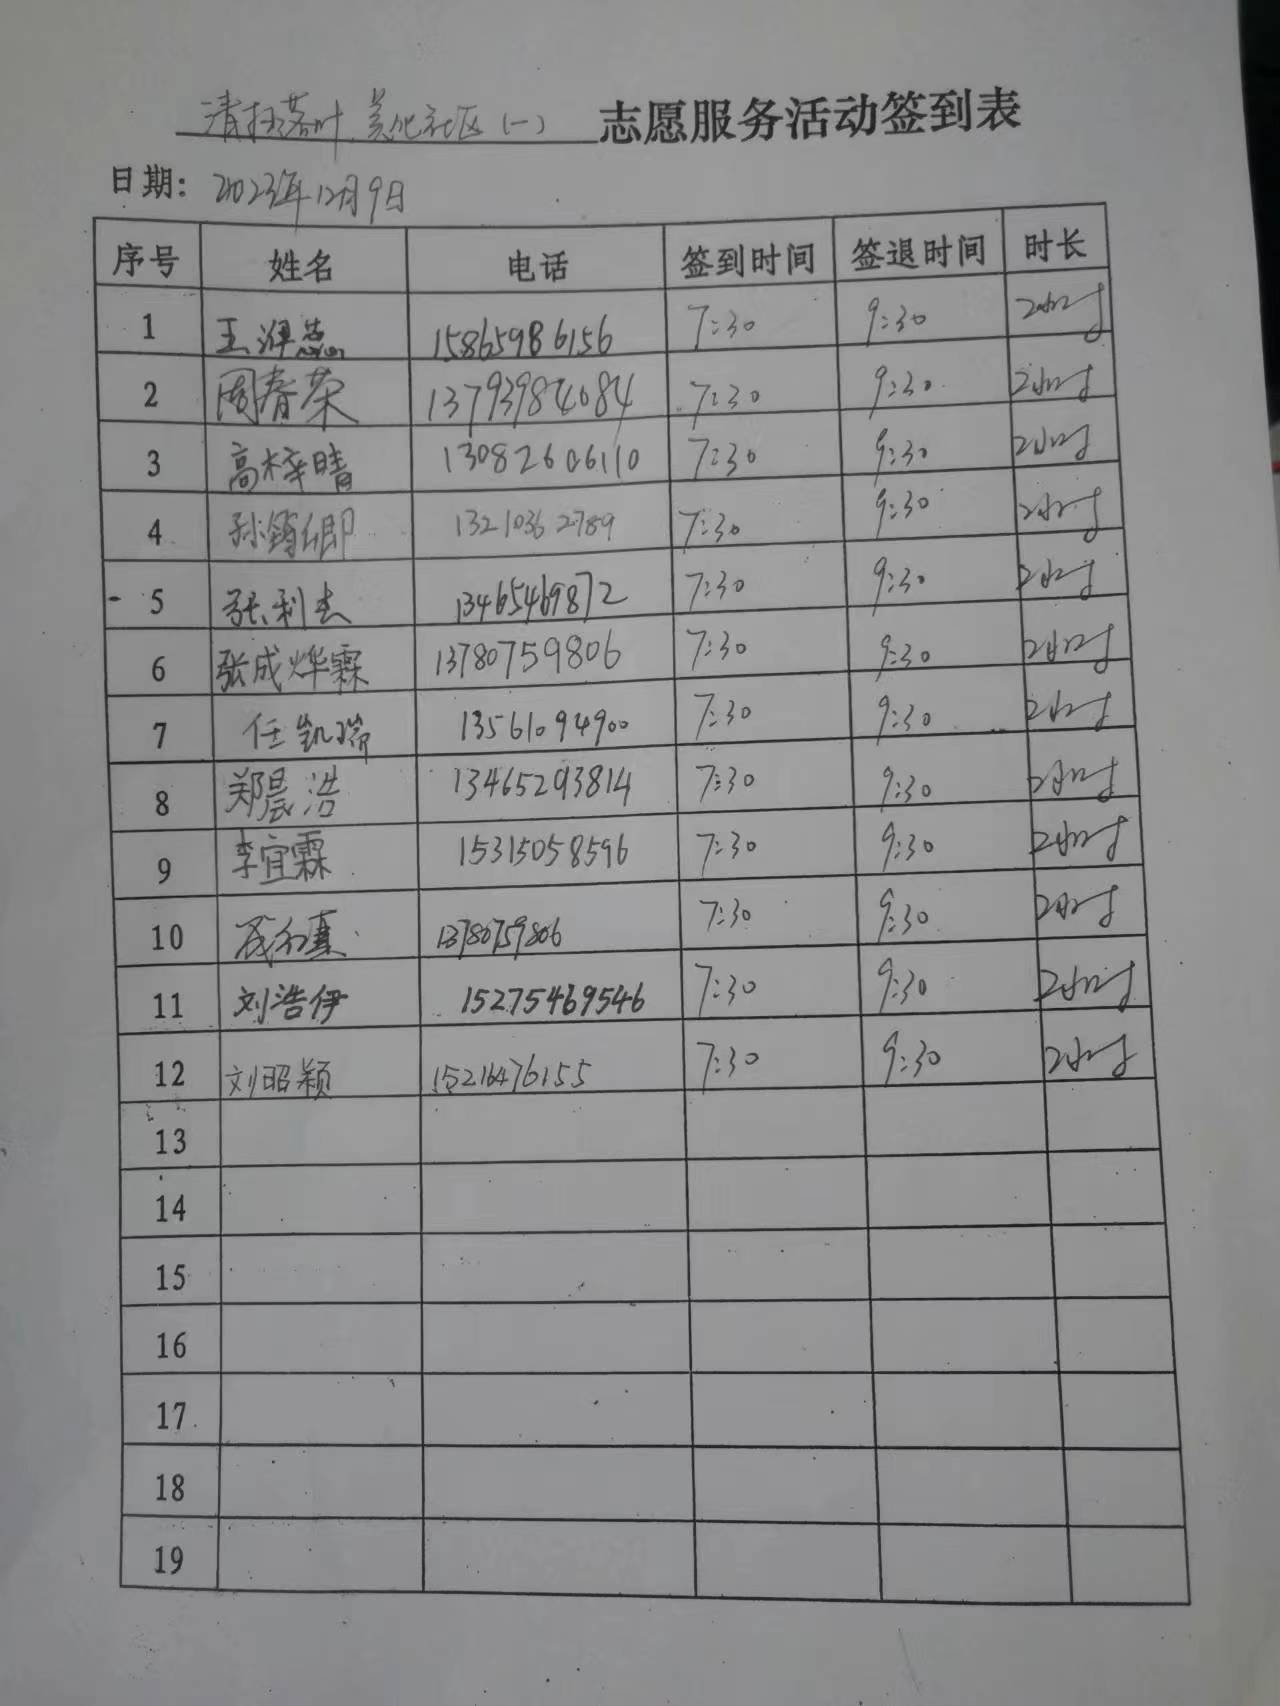 清扫落叶,美化社区(一) 志愿服务活动签到表
日期: 2023年12月9日
序号 姓名 电话 签到时间 签退时间 时长
1 王润蕊 15865986156 7:30 9:30 2小时
2 周春荣 13793987084 7:30 9:30 2小时
3 高梓晴 13082606110 7:30 9:30 2小时
4 13210362789 7:30 9:30 2小时
5 张利杰 13465469872 7:30 9:30 2小时
6 张成烨霖 13780759806 7:30 9:30 2小时
7 任凯瑞 13561094900 7:30 9:30 2小时
8 郑晨浩 13465293814 7:30 9:30 2小时
9 李宜霖 15315058596 7:30 9:30 2小时
10 13780759806 7:30 9:30 2小时
11 刘浩伊 15275469546 7:30 9:30 2小时
12 刘昭颖 15216476155 7:30 9:30 2小时
13
14
15
16
17
18
19